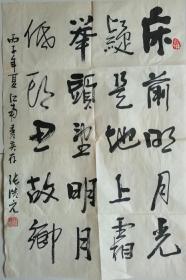 床前明月光
疑是地上霜
举頭望明月
低頭思故鄉
丙子年夏江南